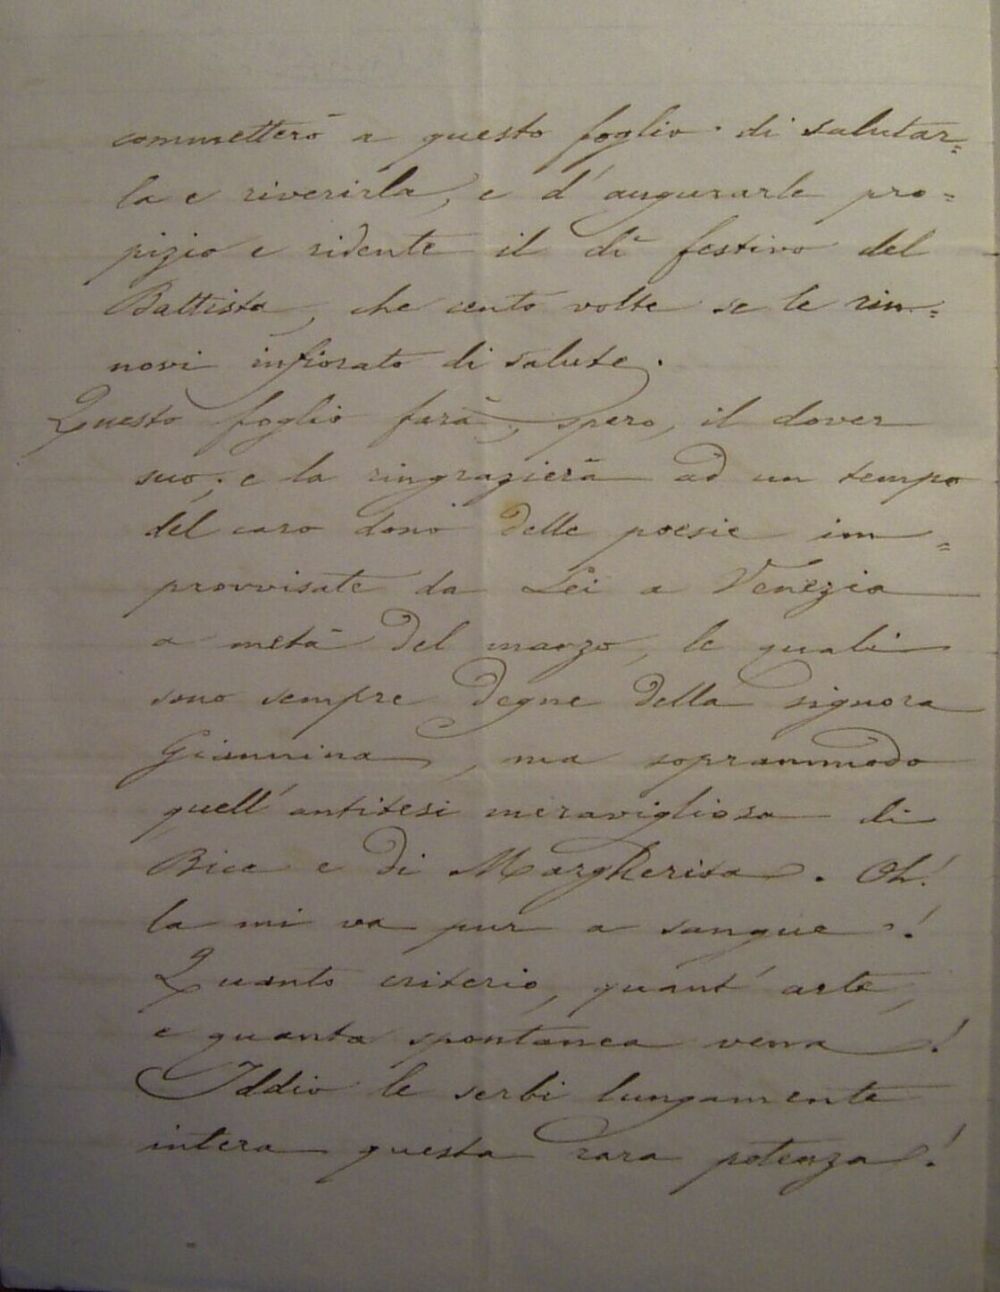 commetterò a questo foglio di salutar=
la e riverirla, e d'augurarle pro=
pizio e ridente il dì festivo del
Battista, che cento volte se le rin=
novi infiorato di salute.
Questo foglio farà, spero, il dover
suo, e la ringrazierà ad un tempo
del caro dono delle poesie im=
provvisate da Lei a Venezia
a metà del marzo, le quali
sono sempre degne della signora
Giannina, ma soprammodo
quell'antitesi meravigliosa di
Bice e di Margherita. Oh!
la mi va pur a sangue!
Quanto criterio, quant'arte,
e quanta spontanea vena!
Iddio le serbi lungamente
intera questa rara potenza!